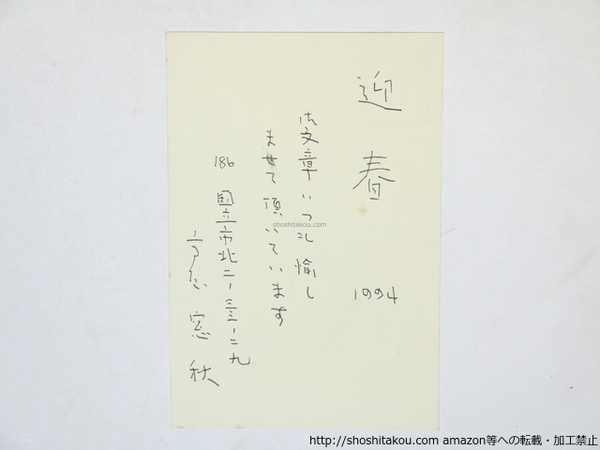 迎春
1994
御文章いつも愉し
ませて頂いています
186 国立市北二ノ三三ノ二九
高屋窓秋
shoshitakou.com
http://shoshitakou.com amazon等への転載・加工禁止